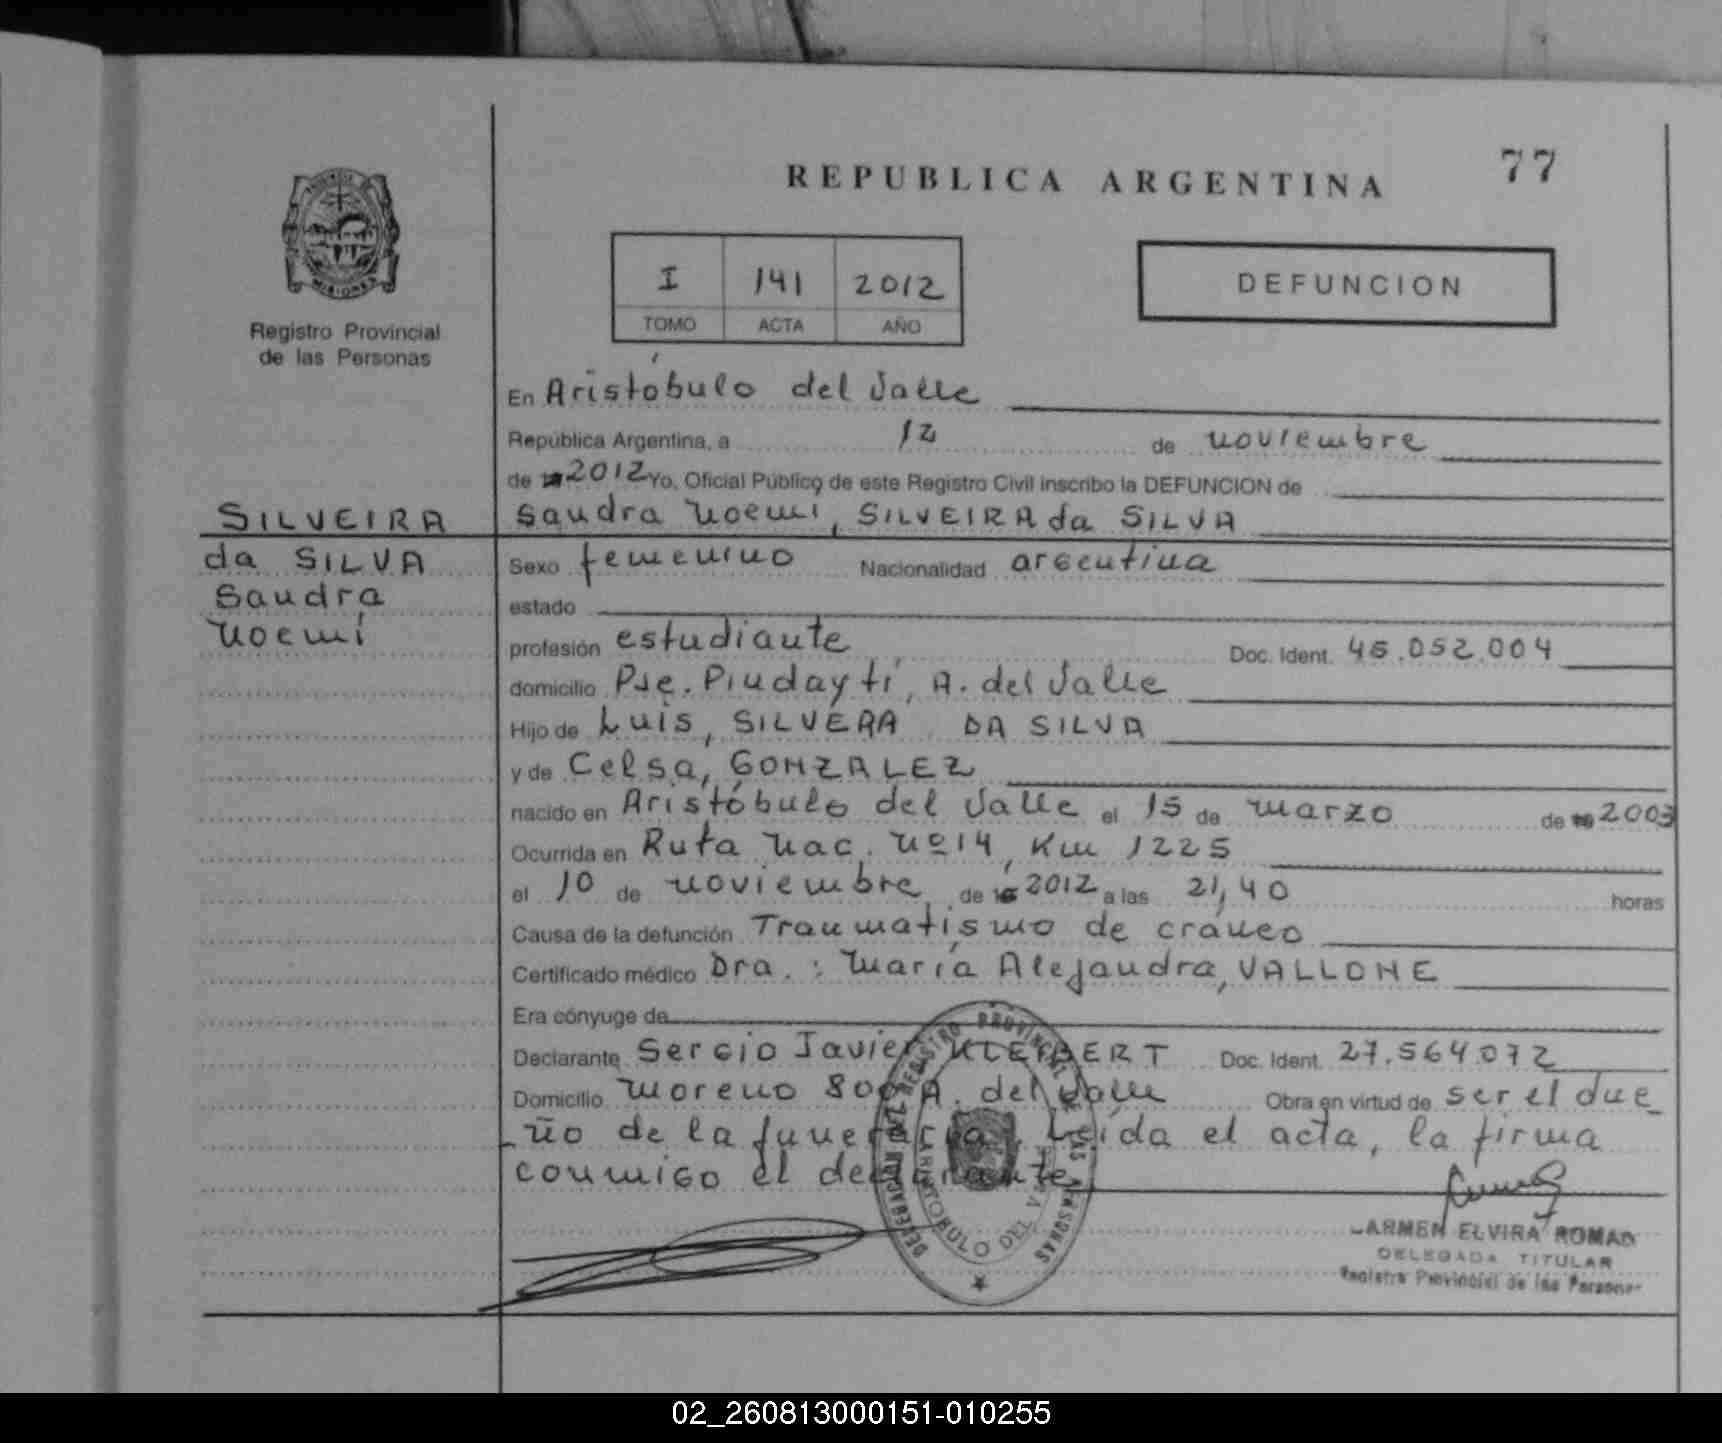 REPUBLICA ARGENTINA
77
MISIONES
Registro Provincial
de las Personas
I 141 2012
TOMO ACTA AÑO
DEFUNCION
En Aristóbulo del Valle
República Argentina, a 12 de noviembre
de 2012 Yo, Oficial Público de este Registro Civil inscribo la DEFUNCION de
Sandra Noemi, SILVEIRA da SILVA
SILVEIRA
da SILVA
Sandra
Noemí
Sexo femenino Nacionalidad argentina
estado
profesión estudiante Doc. Ident. 45.052.004
domicilio Pje. Pindaytí, A. del Valle
Hijo de Luis, SILVERA DA SILVA
y de Celsa, GONZALEZ
nacido en Aristóbulo del Valle el 15 de marzo de 2003
Ocurrida en Ruta Nac. Nº 14, Km 1225
el 10 de noviembre de 2012 a las 21,40 horas
Causa de la defunción Traumatismo de cráneo
Certificado médico Dra.: María Alejandra, VALLONE
Era cónyuge de
Declarante Sergio Javier KLEIBERT Doc. Ident. 27.564.072
Domicilio Moreno 800 A. del Valle Obra en virtud de ser el due
ño de la funeraria. Leída el acta, la firma
conmigo el declarante
DELEGACION DEL REGISTRO PROVINCIAL DE LAS PERSONAS
ARISTOBULO DEL VALLE
CARMEN ELVIRA ROMAO
DELEGADA TITULAR
Registro Provincial de las Personas
02_260813000151-010255